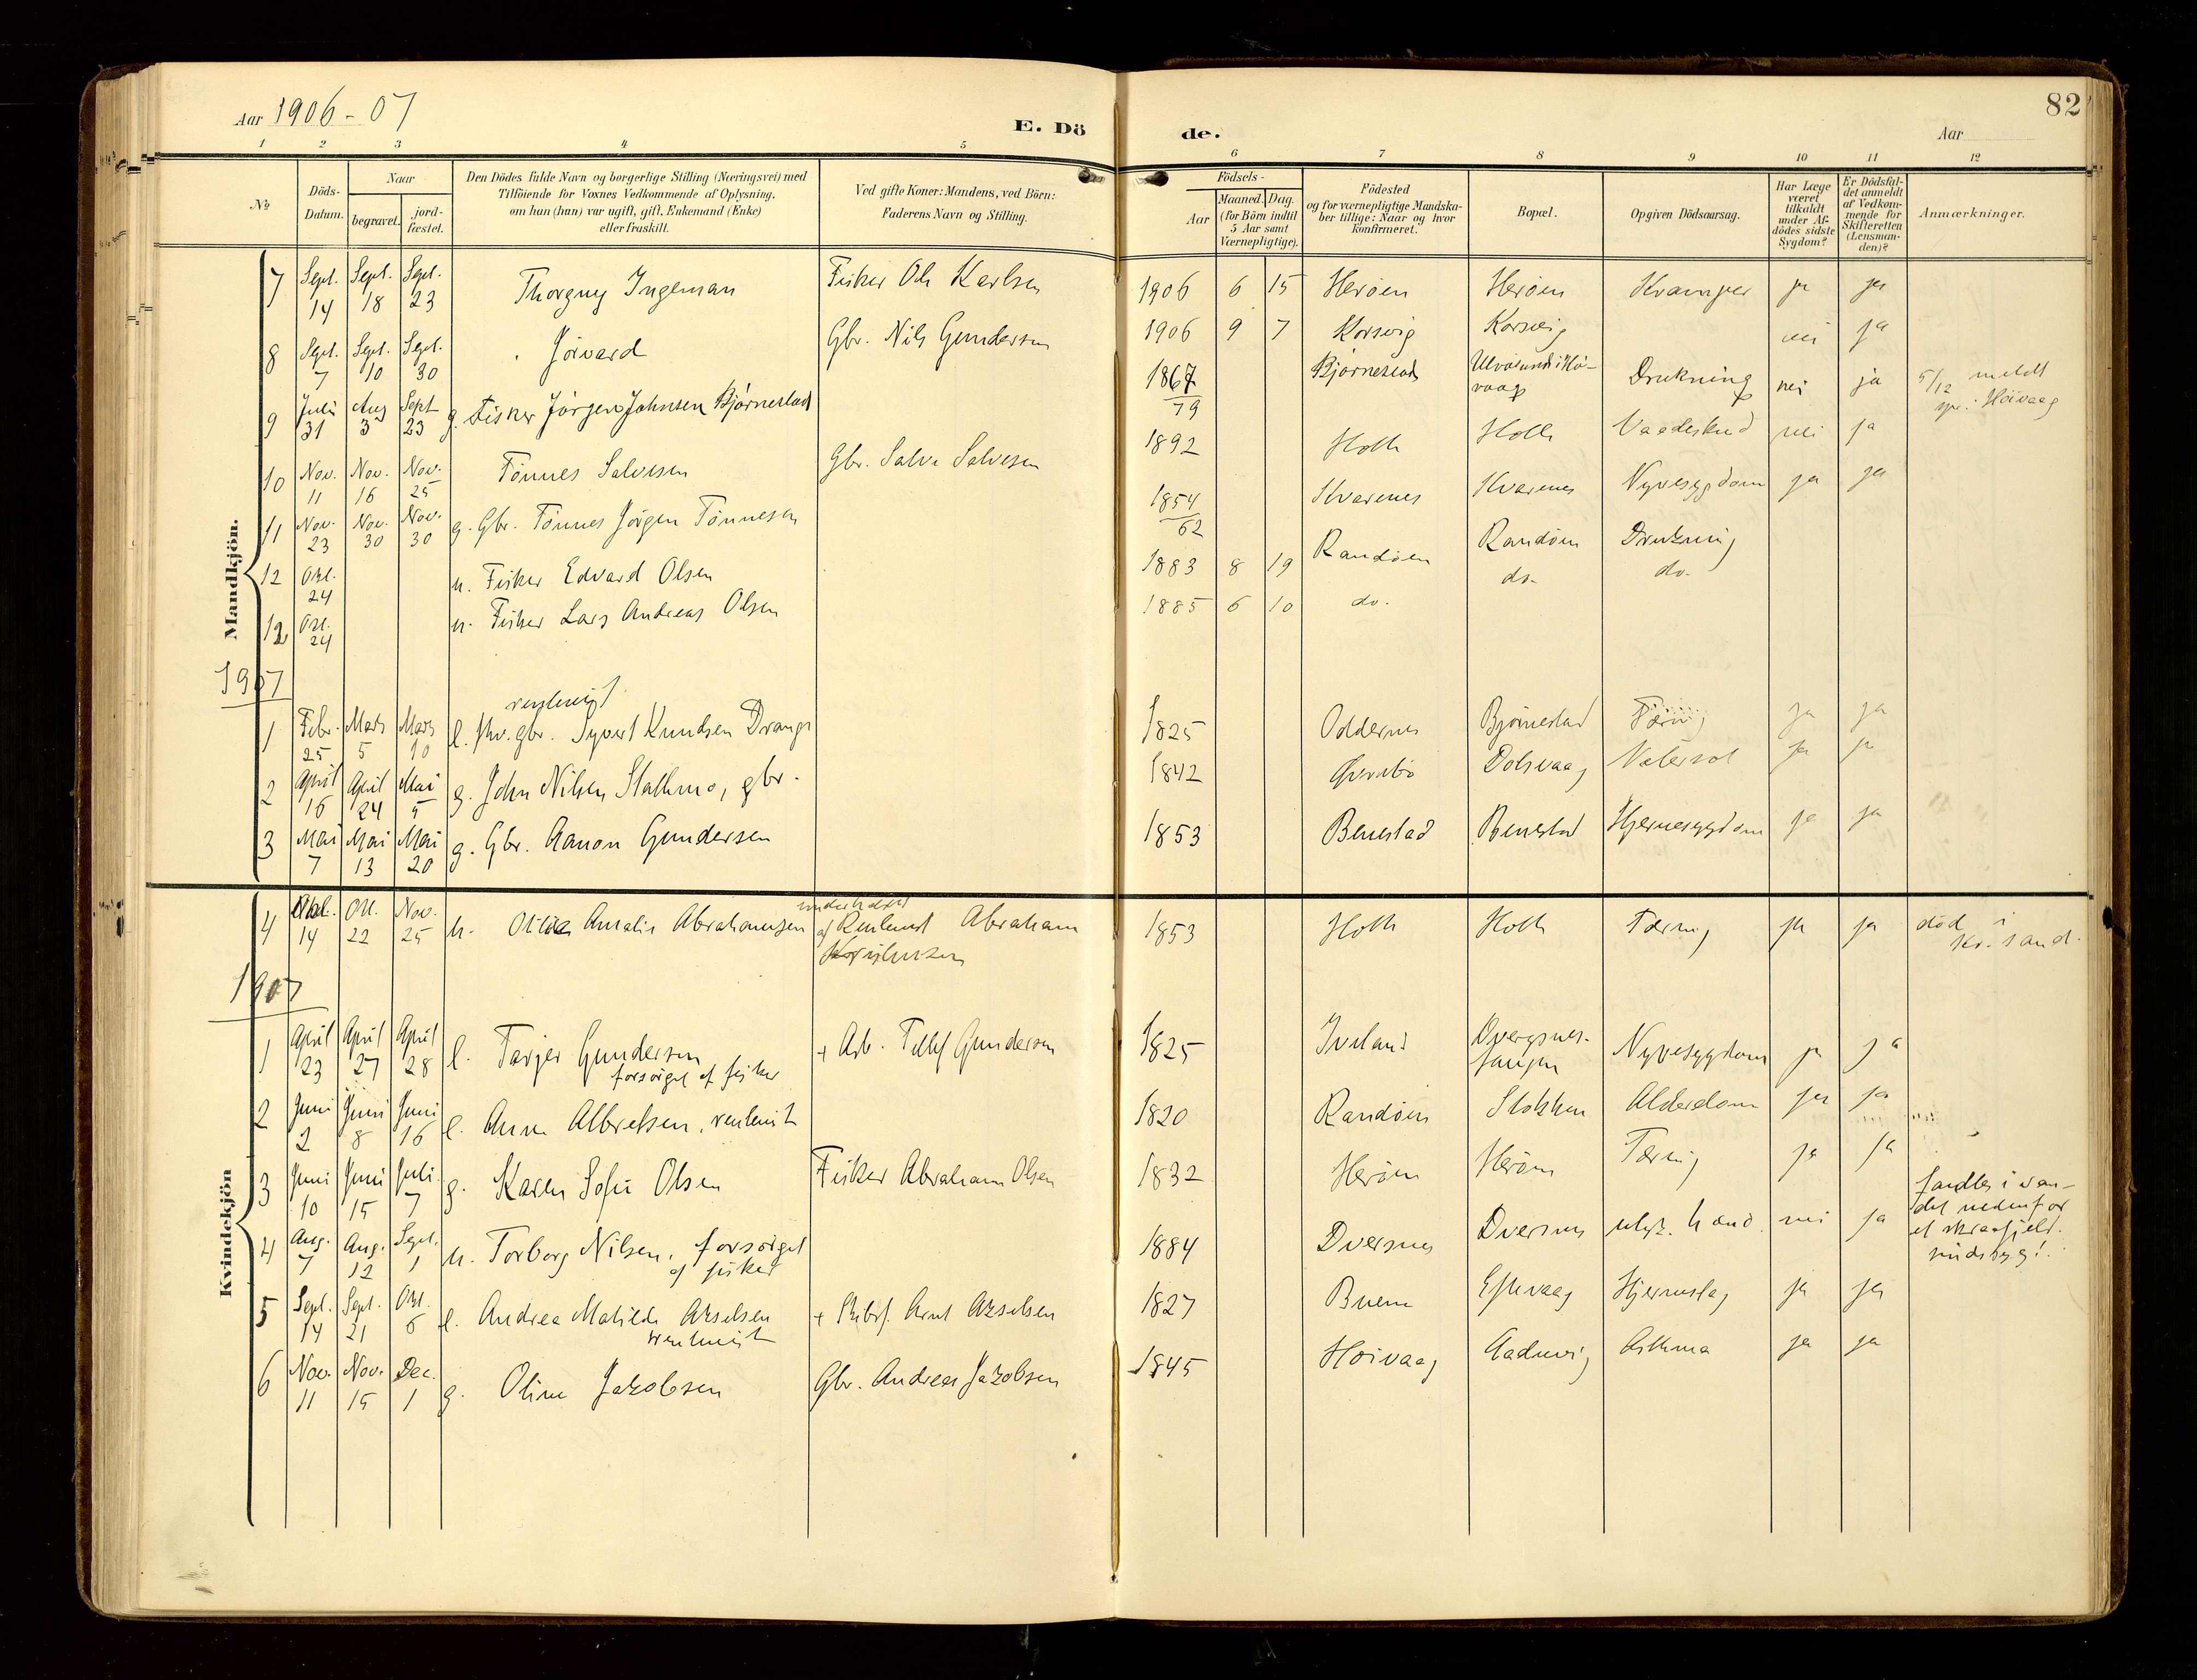 Aar 1906-07
E. Döde.
82
Aar
1 2 3 4 5 6 7 8 9 10 11 12
№
Döds-Datum.
Naar
begravet.
jord-fæstet.
Den Dödes fulde Navn og borgerlige Stilling (Næringsvei) med
Tilföiende for Voxnes Vedkommende af Oplysning,
om han (hun) var ugift, gift, Enkemand (Enke)
eller fraskilt.
Ved gifte Koner: Mandens, ved Börn:
Faderens Navn og Stilling.
Födsels-
Aar
Maaned. Dag.
(for Börn indtil
5 Aar samt
Værnepligtige).
Födested
og for værnepligtige Mandska-
ber tillige: Naar og hvor
konfirmeret.
Bopæl.
Opgiven Dödsaarsag.
Har Læge
været
tilkaldt
under Af-
dödes sidste
Sygdom?
Er Dödsfal-
det anmeldt
af Vedkom-
mende for
Skifteretten
(Lensman-
den)?
Anmærkninger.
Mandkjön.
7 Sept. 14 Sept. 18 Sept. 23 Thorguy Ingeman Fisker Ole Karlsen 1906 6 15 Herøen Herøen Kramper ja ja
8 Sept. 7 Sept. 10 Sept. 30 Jörvard Gbr. Nils Gundersen 1906 9 7 Korsvig Korsvig nei ja
9 Juli 31 Aug 3 Sept 23 g. Fisker Jörgen Johnsen Bjørnestad 1867 79 Bjørnestad Ulvøsund i Hø-
vaag Drukning nei ja 5/12 meldt
spr. i Höivaag
10 Nov. 11 Nov. 16 Nov. 25 Tönnes Salvesen Gbr. Salve Salvesen 1892 Holte Holte Vaadeskud nei ja
11 Nov. 23 Nov. 30 Nov. 30 g. Gbr. Tönnes Jörgen Tönnesen 1854 62 Kvarenes Kvarenes Nyresygdom ja ja
12 Okt. 24 u. Fisker Edvard Olsen 1883 8 19 Randøen Randøen Drukning
12 Okt. 24 u. Fisker Lars Andreas Olsen 1885 6 10 do. do. do.
1907
1 Febr. 25 Mars 5 Mars 10 l. fhv. gbr. Syvert Knudsen Drange 1825 Oddernes Bjørnestad Tæring ja ja
2 April 16 April 24 Mai 5 g. John Nilsen Stallemo, gbr. 1842 Øvrebø Dolsvaag ja ja
3 Mai 7 Mai 13 Mai 20 g. Gbr. Aanon Gundersen 1853 Benestad Benestad Hjernesygdom ja ja
Kvindekjön
4 Okt. 14 Okt. 22 Nov. 25 u. Otilie Amalie Abrahamsen underholdt
af Rentenist Abraham
1853 Holte Holte Tæring ja ja död i
Kr.sand.
1907
1 April 23 April 27 April 28 l. Tarjer Gundersen
forsörget af fisker + Arb. Tellef Gundersen 1825 Iveland Nyresygdom ja ja
2 Juni 2 Juni 8 Juni 16 l. Anne Albretsen, rentenist 1820 Randøen Stokken Alderdom ja ja
3 Juni 10 Juni 15 Juli 7 g. Karen Sofie Olsen Fisker Abraham Olsen 1832 Herøen Herøen Tæring ja ja
4 Aug. 7 Aug. 12 Sept. 1 u. Torborg Nilsen, forsörget
af fisker 1884 Dversnes Dversnes ulyk. hænd. nei ja fandtes i van-
det nedenfor
et skraafjeld.
5 Sept. 14 Sept. 21 Okt. 6 l. Andrea Matilde Akselsen
rentenist + Skibsf. Arnt Akselsen 1827 Buene Eftevaag Hjerneslag ja ja
6 Nov. 11 Nov. 15 Dec. 1 g. Oline Jakobsen Gbr. Andreas Jakobsen 1845 Høivaag Aadnevig Asthma ja ja